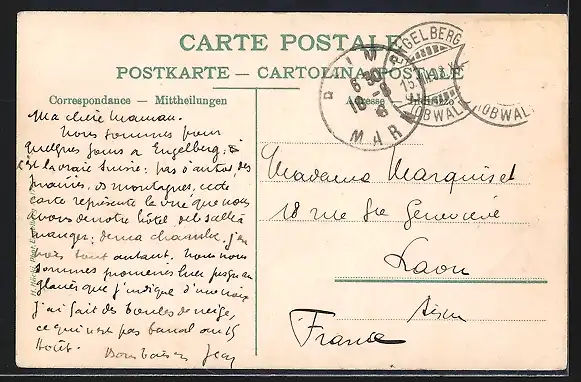 CARTE POSTALE
POSTKARTE — CARTOLINA POSTALE
Correspondance — Mittheilungen
Adresse — Indirizzo
ENGELBERG
(OBWALD)
6 30
MAR
Ma chère maman.
Nous sommes pour
quelques jours à Engelberg;
c'est la vraie Suisse: pas d'autos, des
prairies, des montagnes, cette
carte représente la vue que nous
avons de notre hôtel de la salle à
manger; de ma chambre, j'en
vois tout autant. Nous nous
sommes promenés hier jusqu'au
glacier que j'indique d'une croix
j'ai fait des boules de neige,
ce qui n'est pas banal au 15
Août. Bons baisers Jean
Madame Marquiset
18 rue Ste Geneviève
Laon
Aisne
France